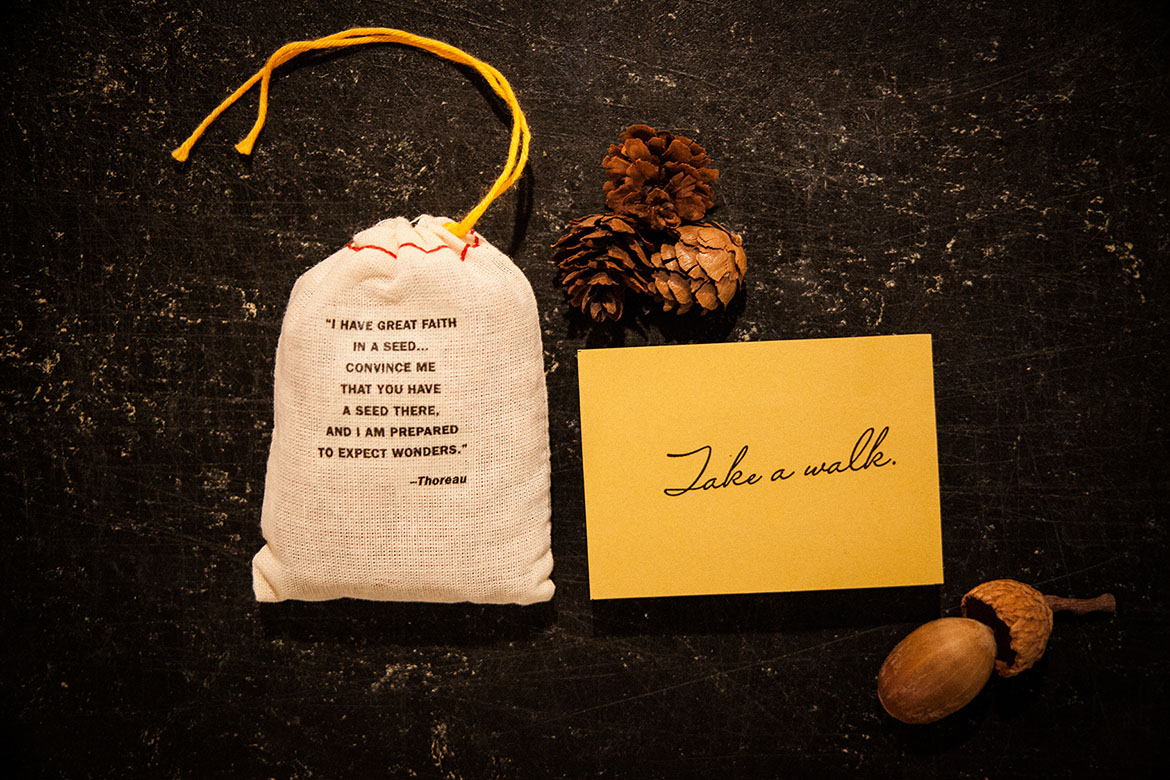 "I HAVE GREAT FAITH
IN A SEED...
CONVINCE ME
THAT YOU HAVE
A SEED THERE,
AND I AM PREPARED
TO EXPECT WONDERS."
–Thoreau
Take a walk.